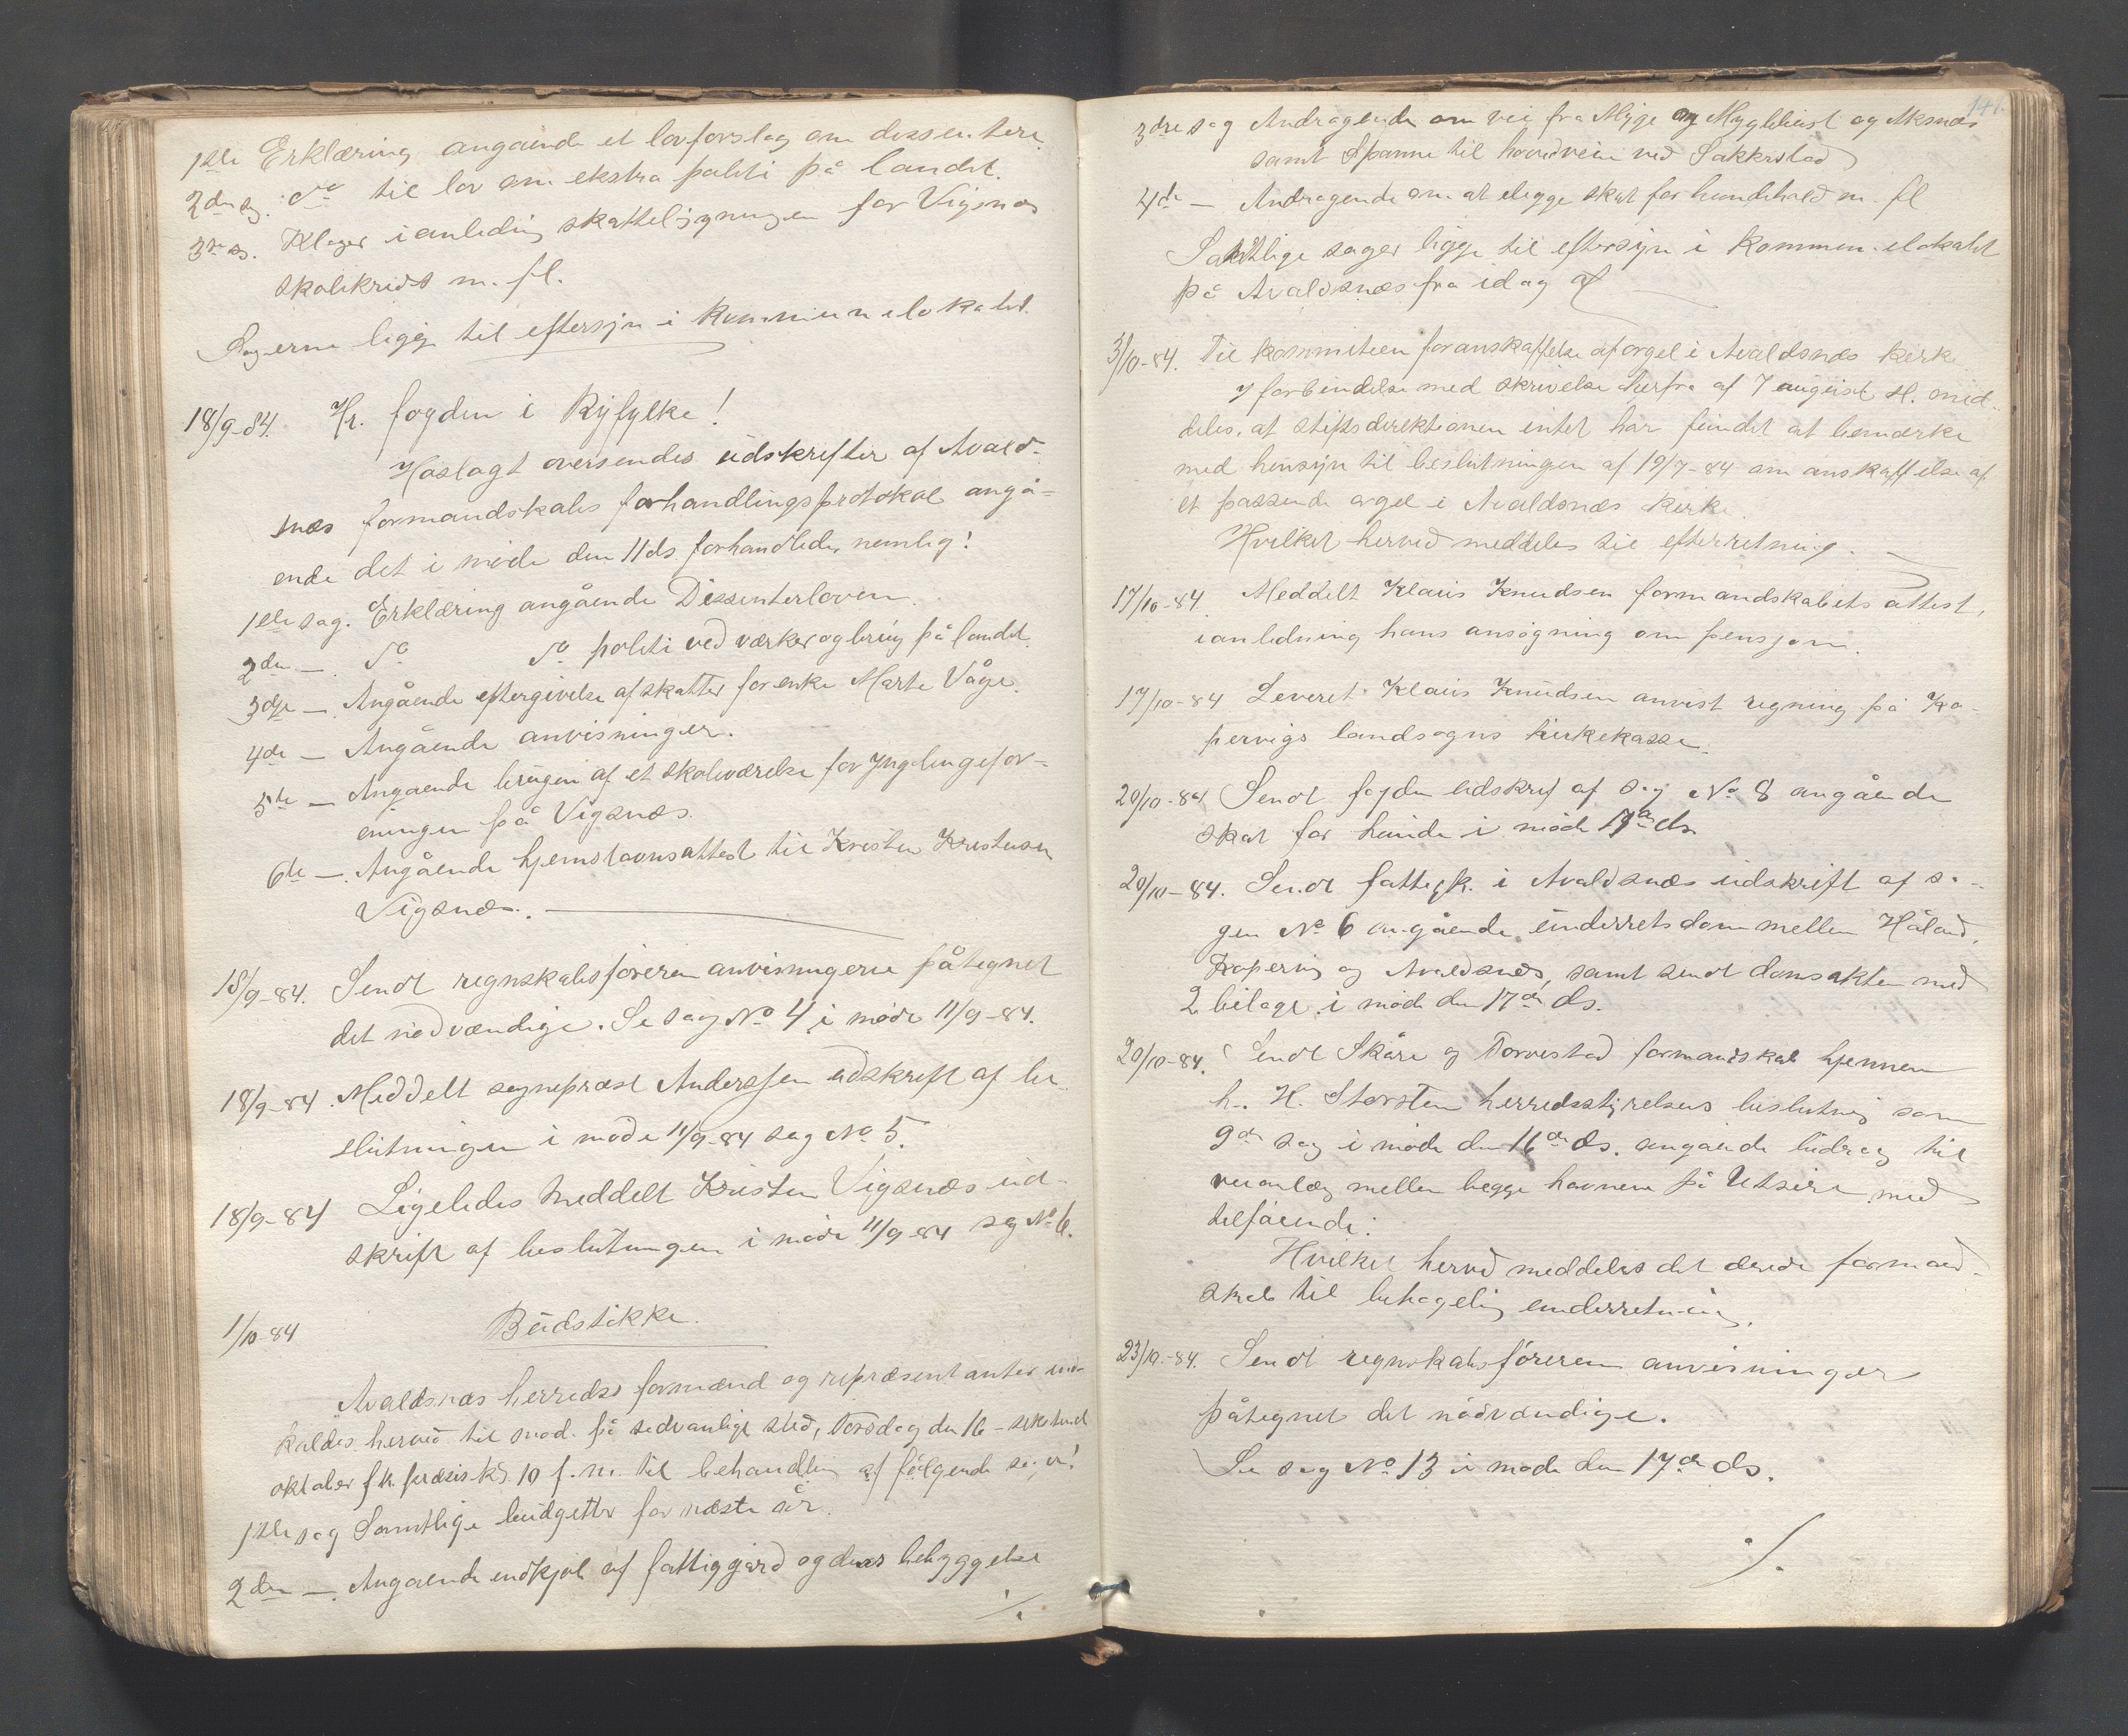 1ste Erklæring angående et lovforslag om dissentere
2den sag. do til lov om ekstra politi på landet.
3die sag. Klager i anleding skatteligningen for Vigsnæs
skolekreds m. fl.
Sagerne ligge til eftersyn i kommunelokalet.
18/9-84. Hr. fogden i Ryfylke!
Hoslagt oversendes udskrifter af Avald-
snæs formandskabs forhandlingsprotokol angå-
ende det i møde den 11 ds. forhandlede, nemlig!
1ste sag. Erklæring angående Dissenterloven.
2den — do do politi ved værker og brug på landet.
3die — Angående eftergivelse af skatter for enke Marte Våge.
4de — Angående anvisninger.
5te — Angaende brugen af et skoleværelse for Ynglingefor-
eningen på Vigsnæs.
6te — Angående hjemstavnsattest til Kristen Kristensen
Vigsnæs.
18/9-84. Sendt regnskabsføreren anvisningerne påtegnet
det nødvændige. Se sag No 4 i møde 11/9-84.
18/9-84. Meddelt sognepræst Anderssen udskrift af be-
slutningen i møde 11/9-84 sag No 5.
18/9-84 Ligeledes meddelt Kristen Vigsnæs ud-
skrift af beslutningen i møde 11/9-84 sag No 6.
1/10-84 Budstikke.
Avaldsnæs herreds formænd og repræsentanter ind-
kaldes herved til mød. på sedvanlige sted, Torsdag den 16 - sekstend
oktober f.k. præcis kl. 10 f.m. til behandling af følgende sager!
1ste sag Samtlige budgetter for næste år.
2den — Angaende indkjøb af fattiggård og dens bebyggelse
./.
141.
3die sag Andragende om vei fra Myge og Mygbleist og Aksnæs
samt Spanne til hovedveien ved Sakkestad
4de — Andragende om at ilegge skat for hundehold m. fl
Samtlige sager ligge til eftersyn i kommunelokalet
på Avaldsnæs fra idag af
3/10-84. Til kommiteen for anskaffelse af orgel i Avaldsnæs kirke
I forbindelse med skrivelse herfra af 7 august d. med-
deles, at stiftsdirektionen intet har fundet at bemærke
med hensyn til beslutningen af 19/7-84 om anskaffelse af
et passende orgel i Avaldsnæs kirke.
Hvilket herved meddeles til efterretning.
17/10-84. Meddelt Klaus Knudsen formandskabets attest,
i anledning hans ansøgning om pensjon.
17/10-84 Leveret Klaus Knudsen anvist regning på Ko-
pervigs landsogns kirkekasse.
20/10-84 Sendt fogden udskrift af sag No 8 angående
skat for hunde i møde 17de ds.
20/10-84. Sendt fattigk. i Avaldsnæs udskrift af sa-
gen No 6 angående underretsdom mellem Håland,
Kopervig og Avaldsnæs, samt sendt domsakten med
2 bilage i møde den 17de ds.
20/10-84. Sendt Skåre og Torvestad formandskab hjennem
h. H. Storsten herredsstyrelsens beslutning som
9de sag i møde den 16de ds. angående bidrag til
veianlæg mellem begge havnene på Utsire med
tilføiende:
Hvilket herved meddeles det ærede formand-
skab til behagelig underretning.
23/10-84. Sendt regnskabsføreren anvisninger
påtegnet det nødvændige.
Se sag No 13 i møde den 17de ds.
./.